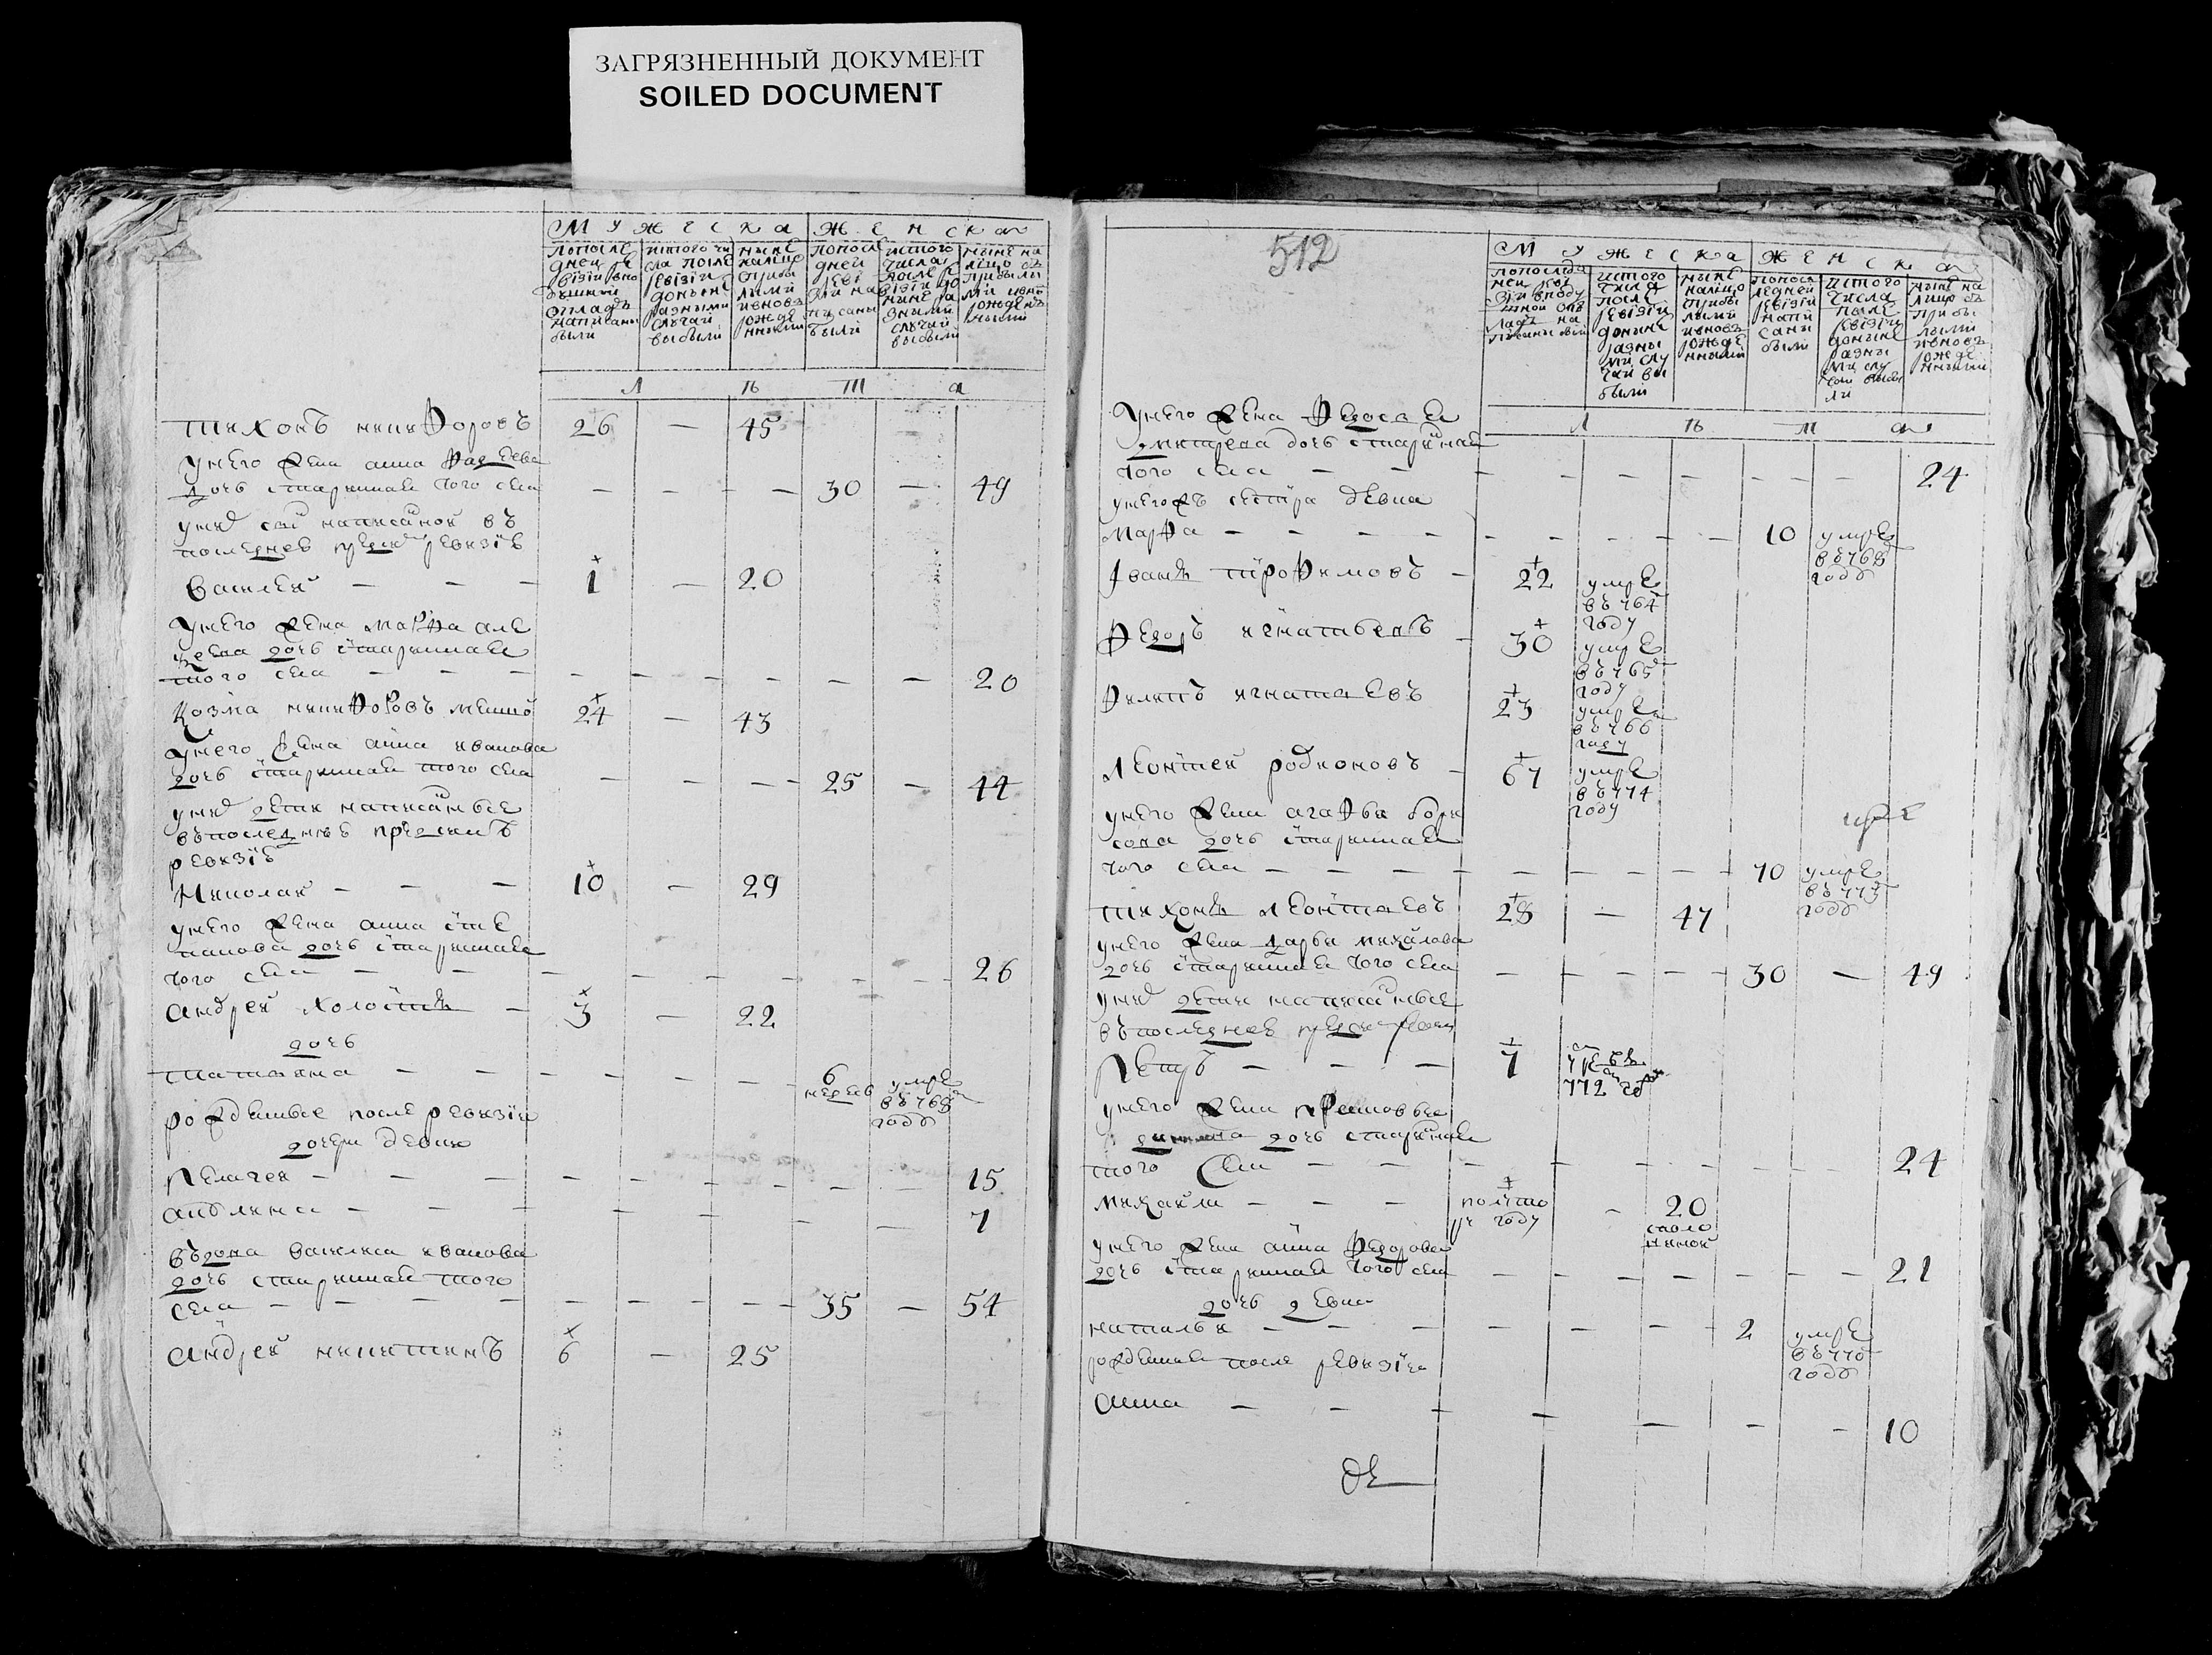 ЗАГРЯЗНЕННЫЙ ДОКУМЕНТ
SOILED DOCUMENT
Мужеска Женска
попосле дней ревизии вподушной окладъ написаны были
изтого числа после ревизии доныне разными случаи выбыли
ныне налицо сприбылыми ивновь рожденными
попоследней ревизии написаны были
изтого числа после ревизии доныне разными случаи выбыли
ныне налицо съ прибылыми ивновь рожденными
лѣта
тихонъ никифоровъ 26 — 45
унего жена анна фадеева
дочь старинная того села — — — — 30 — 49
унихъ сынъ написанной въ
последней пред сим ревизіѣ
василей — — — 1 — 20
унего жена марфа але
дочь старинная
того села — — — — — — — — — 20
козма никифоровъ 24 — 43
унего жена анна иванова
дочь старинная того села — — — — 25 — 44
унихъ дети написанные
въпоследней пред симъ
ревизіѣ
николай — — — 10 — 29
унего жена анна сте
панова дочь старинная
того села — — — — — — — — 26
андрей холостъ — 3 — 22
дочь
татьяна — — — — — — — 6 недель умре въ 768 годо
рожденные после ревизіи
дочери девки
пелагея — — — — — — — — — 15
— — — — — — — — 7
въдова василиса иванова
дочь старинная того
села — — — — — — — — 35 — 54
андрей никитинъ 6 — 25
512
Мужеска Женска
попоследней ревизии вподушной окладъ написаны были
изтого числа после ревизии доныне разными случаи выбыли
ныне налицо сприбылыми ивновь рожденными
попоследней ревизии написаны были
изтого числа после ревизии доныне разными случаи выбыли
ныне налицо съ прибылыми ивновь рожденными
лѣта
унего жена федосья
дмитрева дочь старинная
того села — — — — — — — — 24
унегожъ сестра девка
марфа — — — — — — — 10 умре въ 768 годо
іванъ трофимовъ — 22 умре въ 764 году
федоръ игнатьевъ — 30 умре въ 765 году
филипъ игнатьевъ 23 умре въ 766 году
леонтей родионовъ — 67 умре въ 774 году
унего жена агафья бори
сова дочь старинная
того села — — — — — — — 70 умре въ 773 годо
тихонъ леонтьевъ 28 — 47
унего жена дарья михайлова
дочь старинная того села — — — — 30 — 49
унихъ дети написанные
въпоследней пред сим ревизии
петръ — — — 7
772
унего жена
дочь старинная
того села — — — — — — — — 24
михайла — — — полуто ра году — 20
унего жена анна федорова
дочь старинная того села — — — — — — — 21
дочь девка
наталья — — — — — — 2 умре въ 770 годо
рожденная после ревизіи
анна — — — — — — — 10